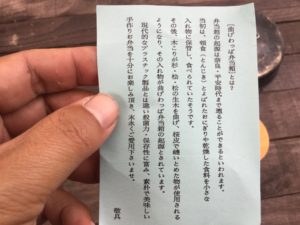 【曲げわっぱ弁当箱】とは？
弁当箱の起源は奈良・平安時代まで遡ることができるといわれます。
当初は、頓食（とんじき）とよばれたおにぎりや乾燥した食料を小さな
入れ物に保管し、食べられていたそうです。
その後、木こりが杉・桧・松の生木を曲げ、桜皮で縫いとめた物が使用される
ようになり、その入れ物が曲げわっぱ弁当箱の起源とされています。
現代的なプラスチック製品とは違い殺菌力・保存性に富み、素朴で美味しい
手作りお弁当を十分にお楽しみ頂き、末永くご愛用下さいませ。
敬具